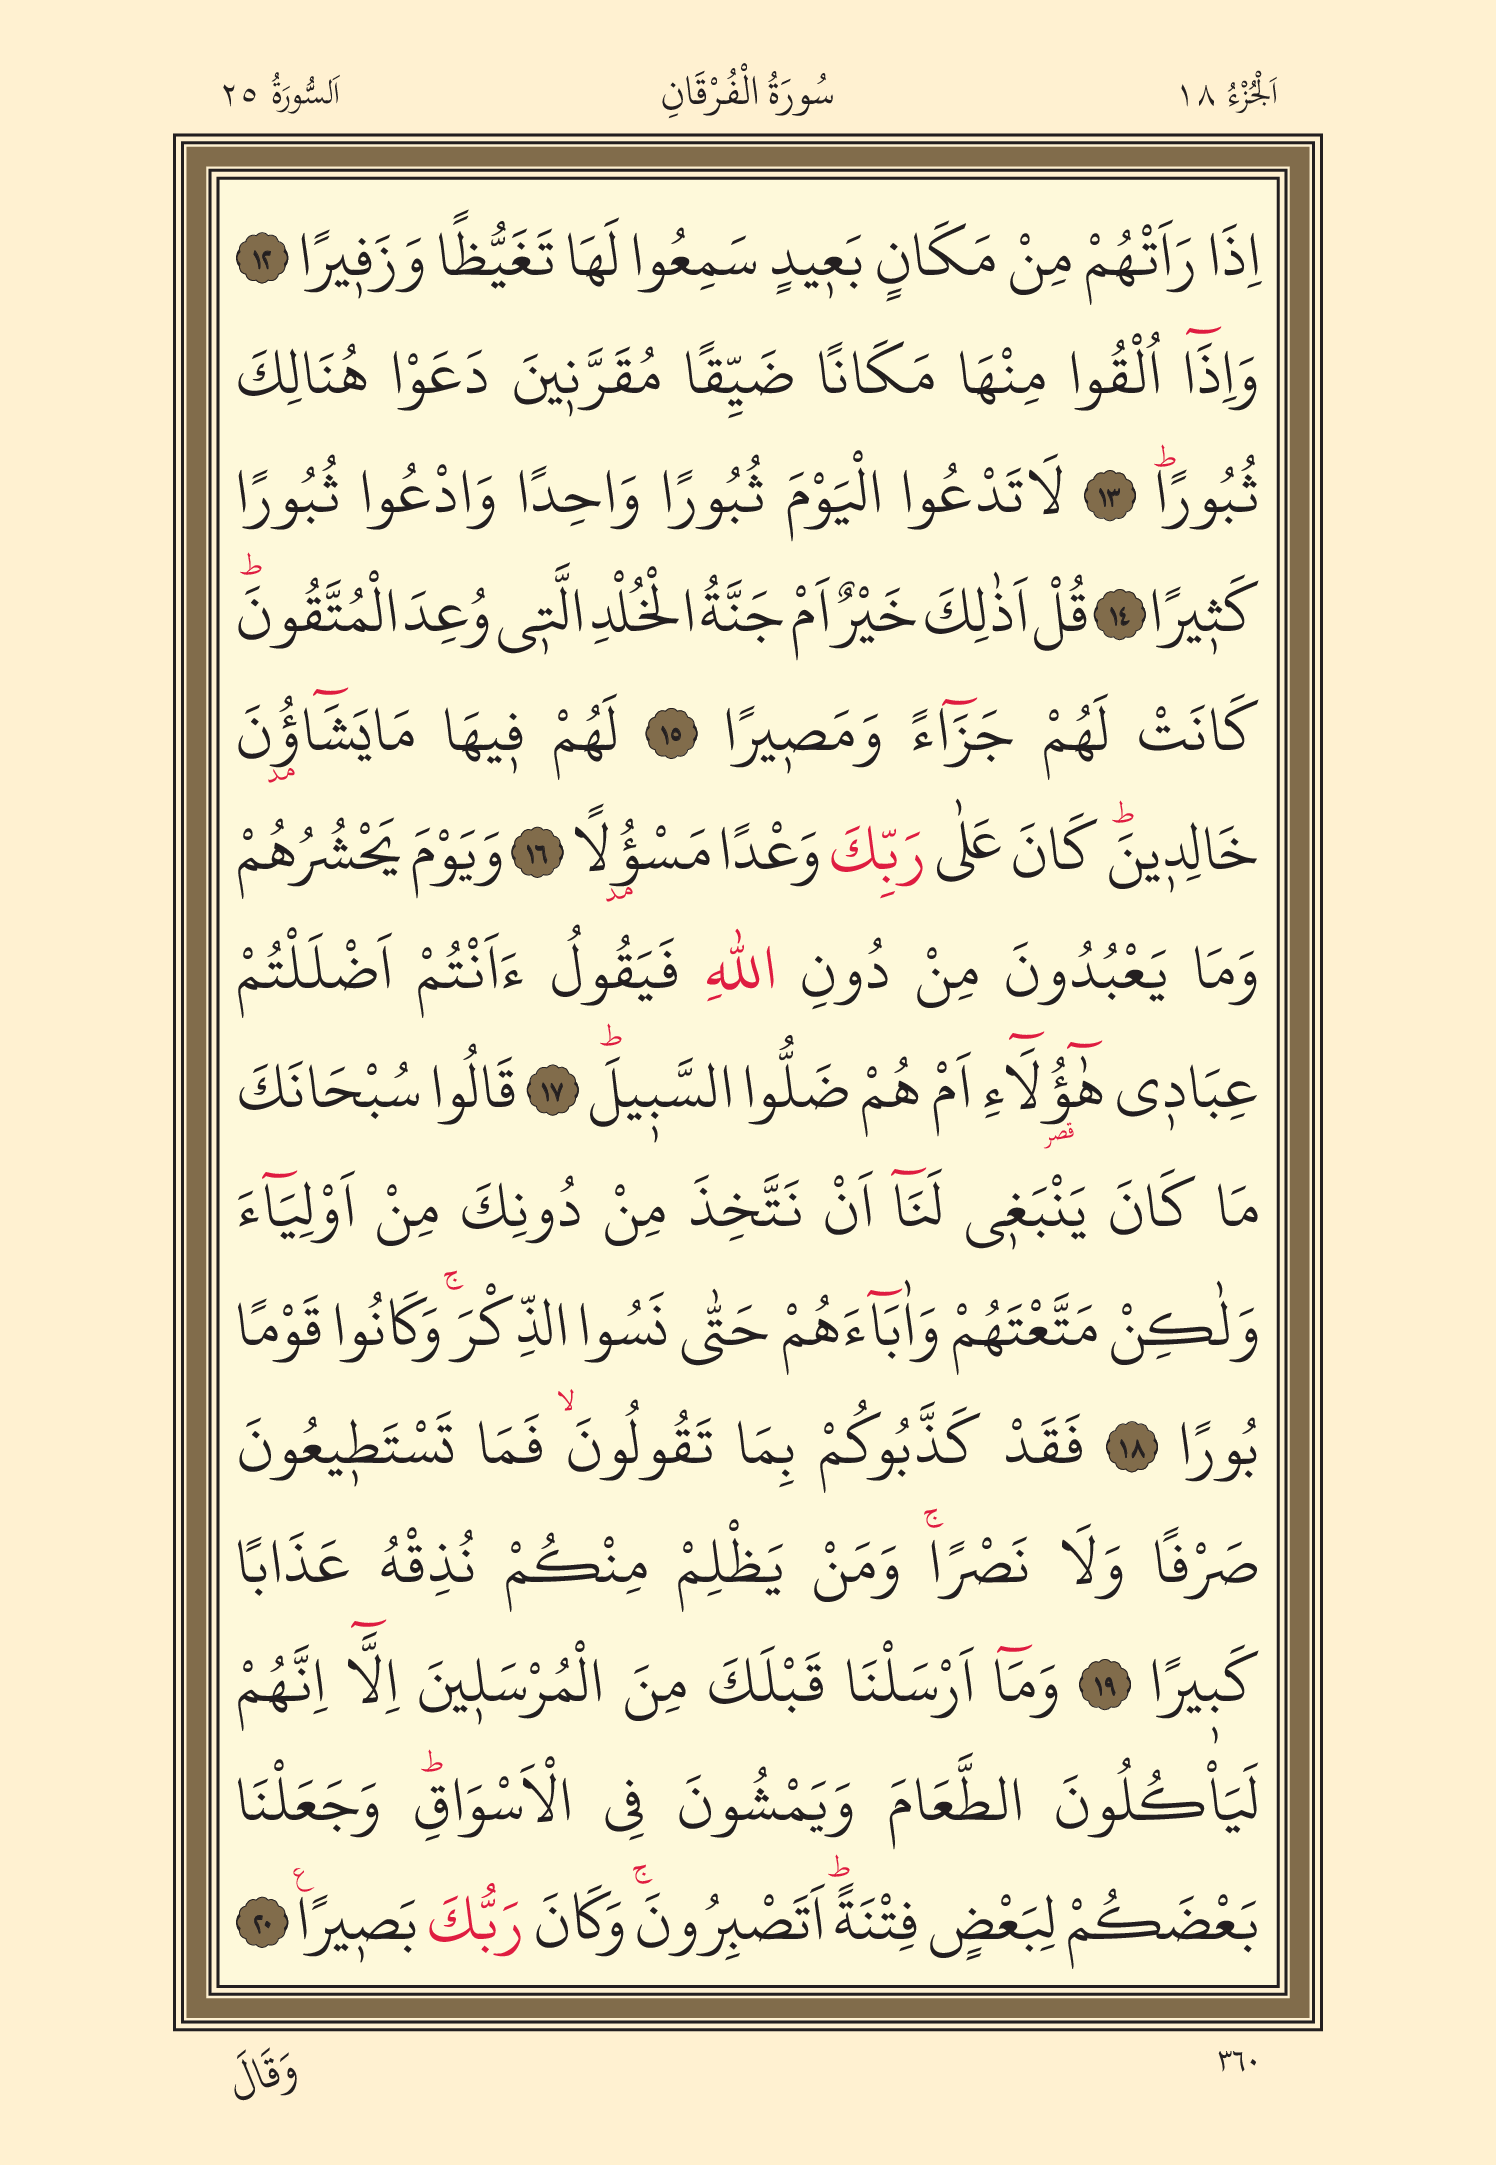 اَلْجُزْءُ ١٨
سُورَةُ الْفُرْقَانِ
اَلسُّورَةُ ٢٥
اِذَا رَاَتْهُمْ مِنْ مَكَانٍ بَعٖيدٍ سَمِعُوا لَهَا تَغَيُّظًا وَزَفٖيرًا ١٢
وَاِذَٓا اُلْقُوا مِنْهَا مَكَانًا ضَيِّقًا مُقَرَّنٖينَ دَعَوْا هُنَالِكَ
ثُبُورًاؕ ١٣ لَا تَدْعُوا الْيَوْمَ ثُبُورًا وَاحِدًا وَادْعُوا ثُبُورًا
كَثٖيرًا ١٤ قُلْ اَذٰلِكَ خَيْرٌ اَمْ جَنَّةُ الْخُلْدِ الَّتٖى وُعِدَ الْمُتَّقُونَؕ
كَانَتْ لَهُمْ جَزَٓاءً وَمَصٖيرًا ١٥ لَهُمْ فٖيهَا مَا يَشَٓاؤُ۫نَ مد
خَالِدٖينَؕ كَانَ عَلٰى رَبِّكَ وَعْدًا مَسْؤُ۫لًا مد ١٦ وَيَوْمَ يَحْشُرُهُمْ
وَمَا يَعْبُدُونَ مِنْ دُونِ اللّٰهِ فَيَقُولُ ءَاَنْتُمْ اَضْلَلْتُمْ
عِبَادٖى هٰٓؤُ۬لَٓاءِ قصر اَمْ هُمْ ضَلُّوا السَّبٖيلَؕ ١٧ قَالُوا سُبْحَانَكَ
مَا كَانَ يَنْبَغٖى لَنَٓا اَنْ نَتَّخِذَ مِنْ دُونِكَ مِنْ اَوْلِيَٓاءَ
وَلٰكِنْ مَتَّعْتَهُمْ وَاٰبَٓاءَهُمْ حَتّٰى نَسُوا الذِّكْرَۚ وَكَانُوا قَوْمًا
بُورًا ١٨ فَقَدْ كَذَّبُوكُمْ بِمَا تَقُولُونَۙ فَمَا تَسْتَطٖيعُونَ
صَرْفًا وَلَا نَصْرًاۚ وَمَنْ يَظْلِمْ مِنْكُمْ نُذِقْهُ عَذَابًا
كَبٖيرًا ١٩ وَمَٓا اَرْسَلْنَا قَبْلَكَ مِنَ الْمُرْسَلٖينَ اِلَّٓا اِنَّهُمْ
لَيَاْكُلُونَ الطَّعَامَ وَيَمْشُونَ فِى الْاَسْوَاقِؕ وَجَعَلْنَا
بَعْضَكُمْ لِبَعْضٍ فِتْنَةًؕ اَتَصْبِرُونَۚ وَكَانَ رَبُّكَ بَصٖيرًا ع ٢٠
٣٦٠
وَقَالَ